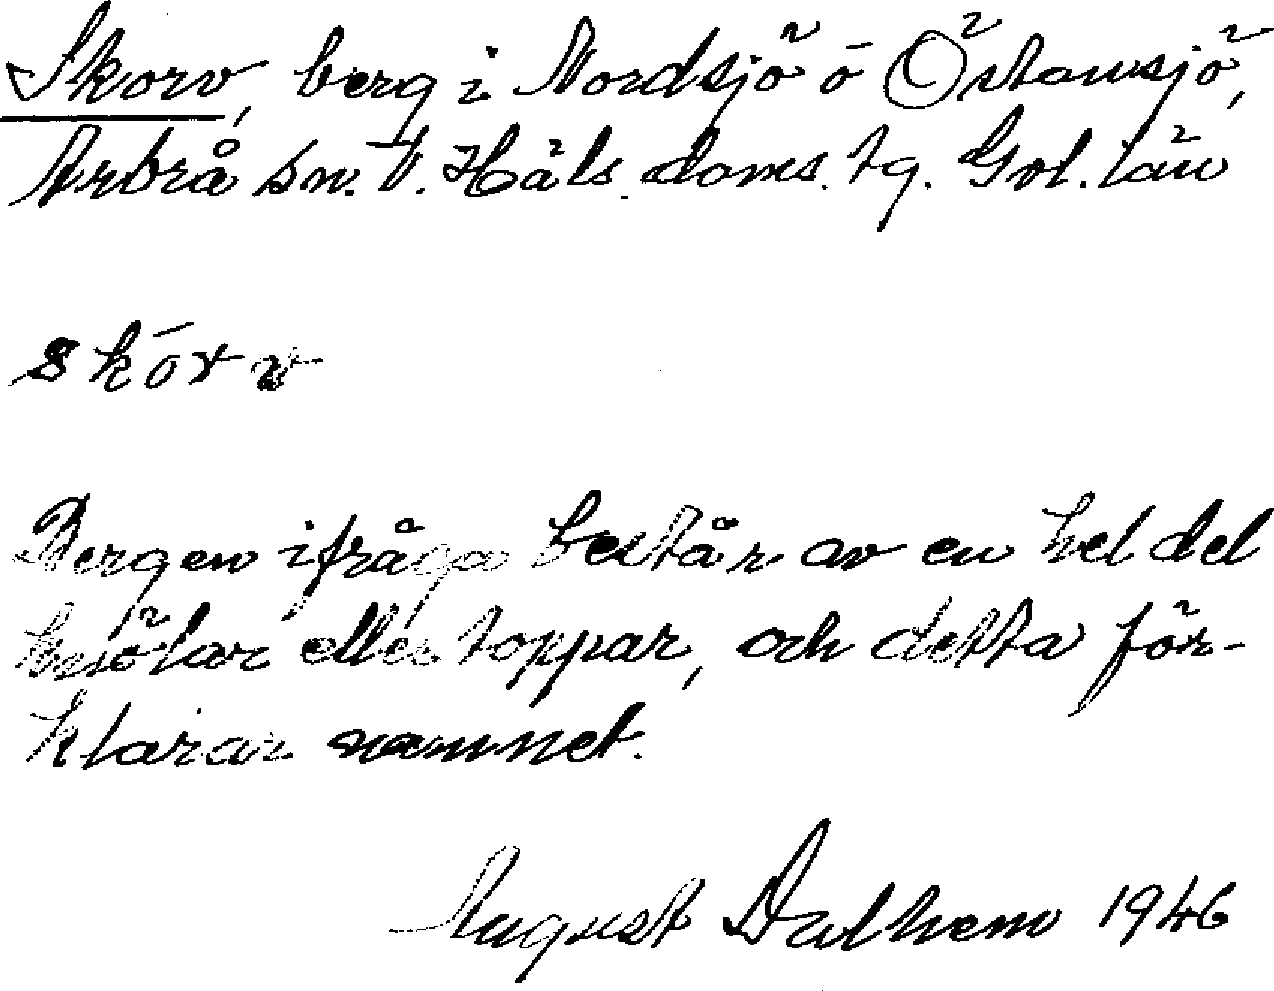 Skorv, berg i Nordsjö o Östansjö,
Arbrå sn. V. Häls. doms. tg. Gvl. län
skórv
Bergen ifråga består av en hel del
knölar eller toppar, och detta för-
klarar namnet.
August Dalhem 1946